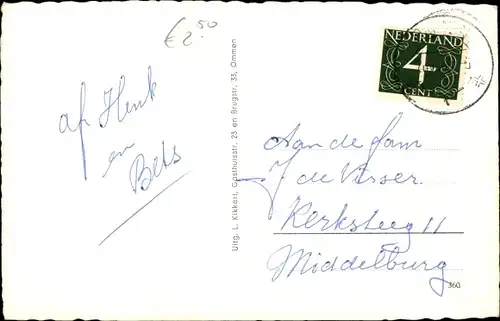 € 2.50
NEDERLAND
4
CENT
af Henk
en
Bets
Uitg. L. Kikkert, Gasthuisstr. 23 en Brugstr. 33, Ommen
Aan de fam
J de Visser.
Kerksteeg 11
Middelburg
360